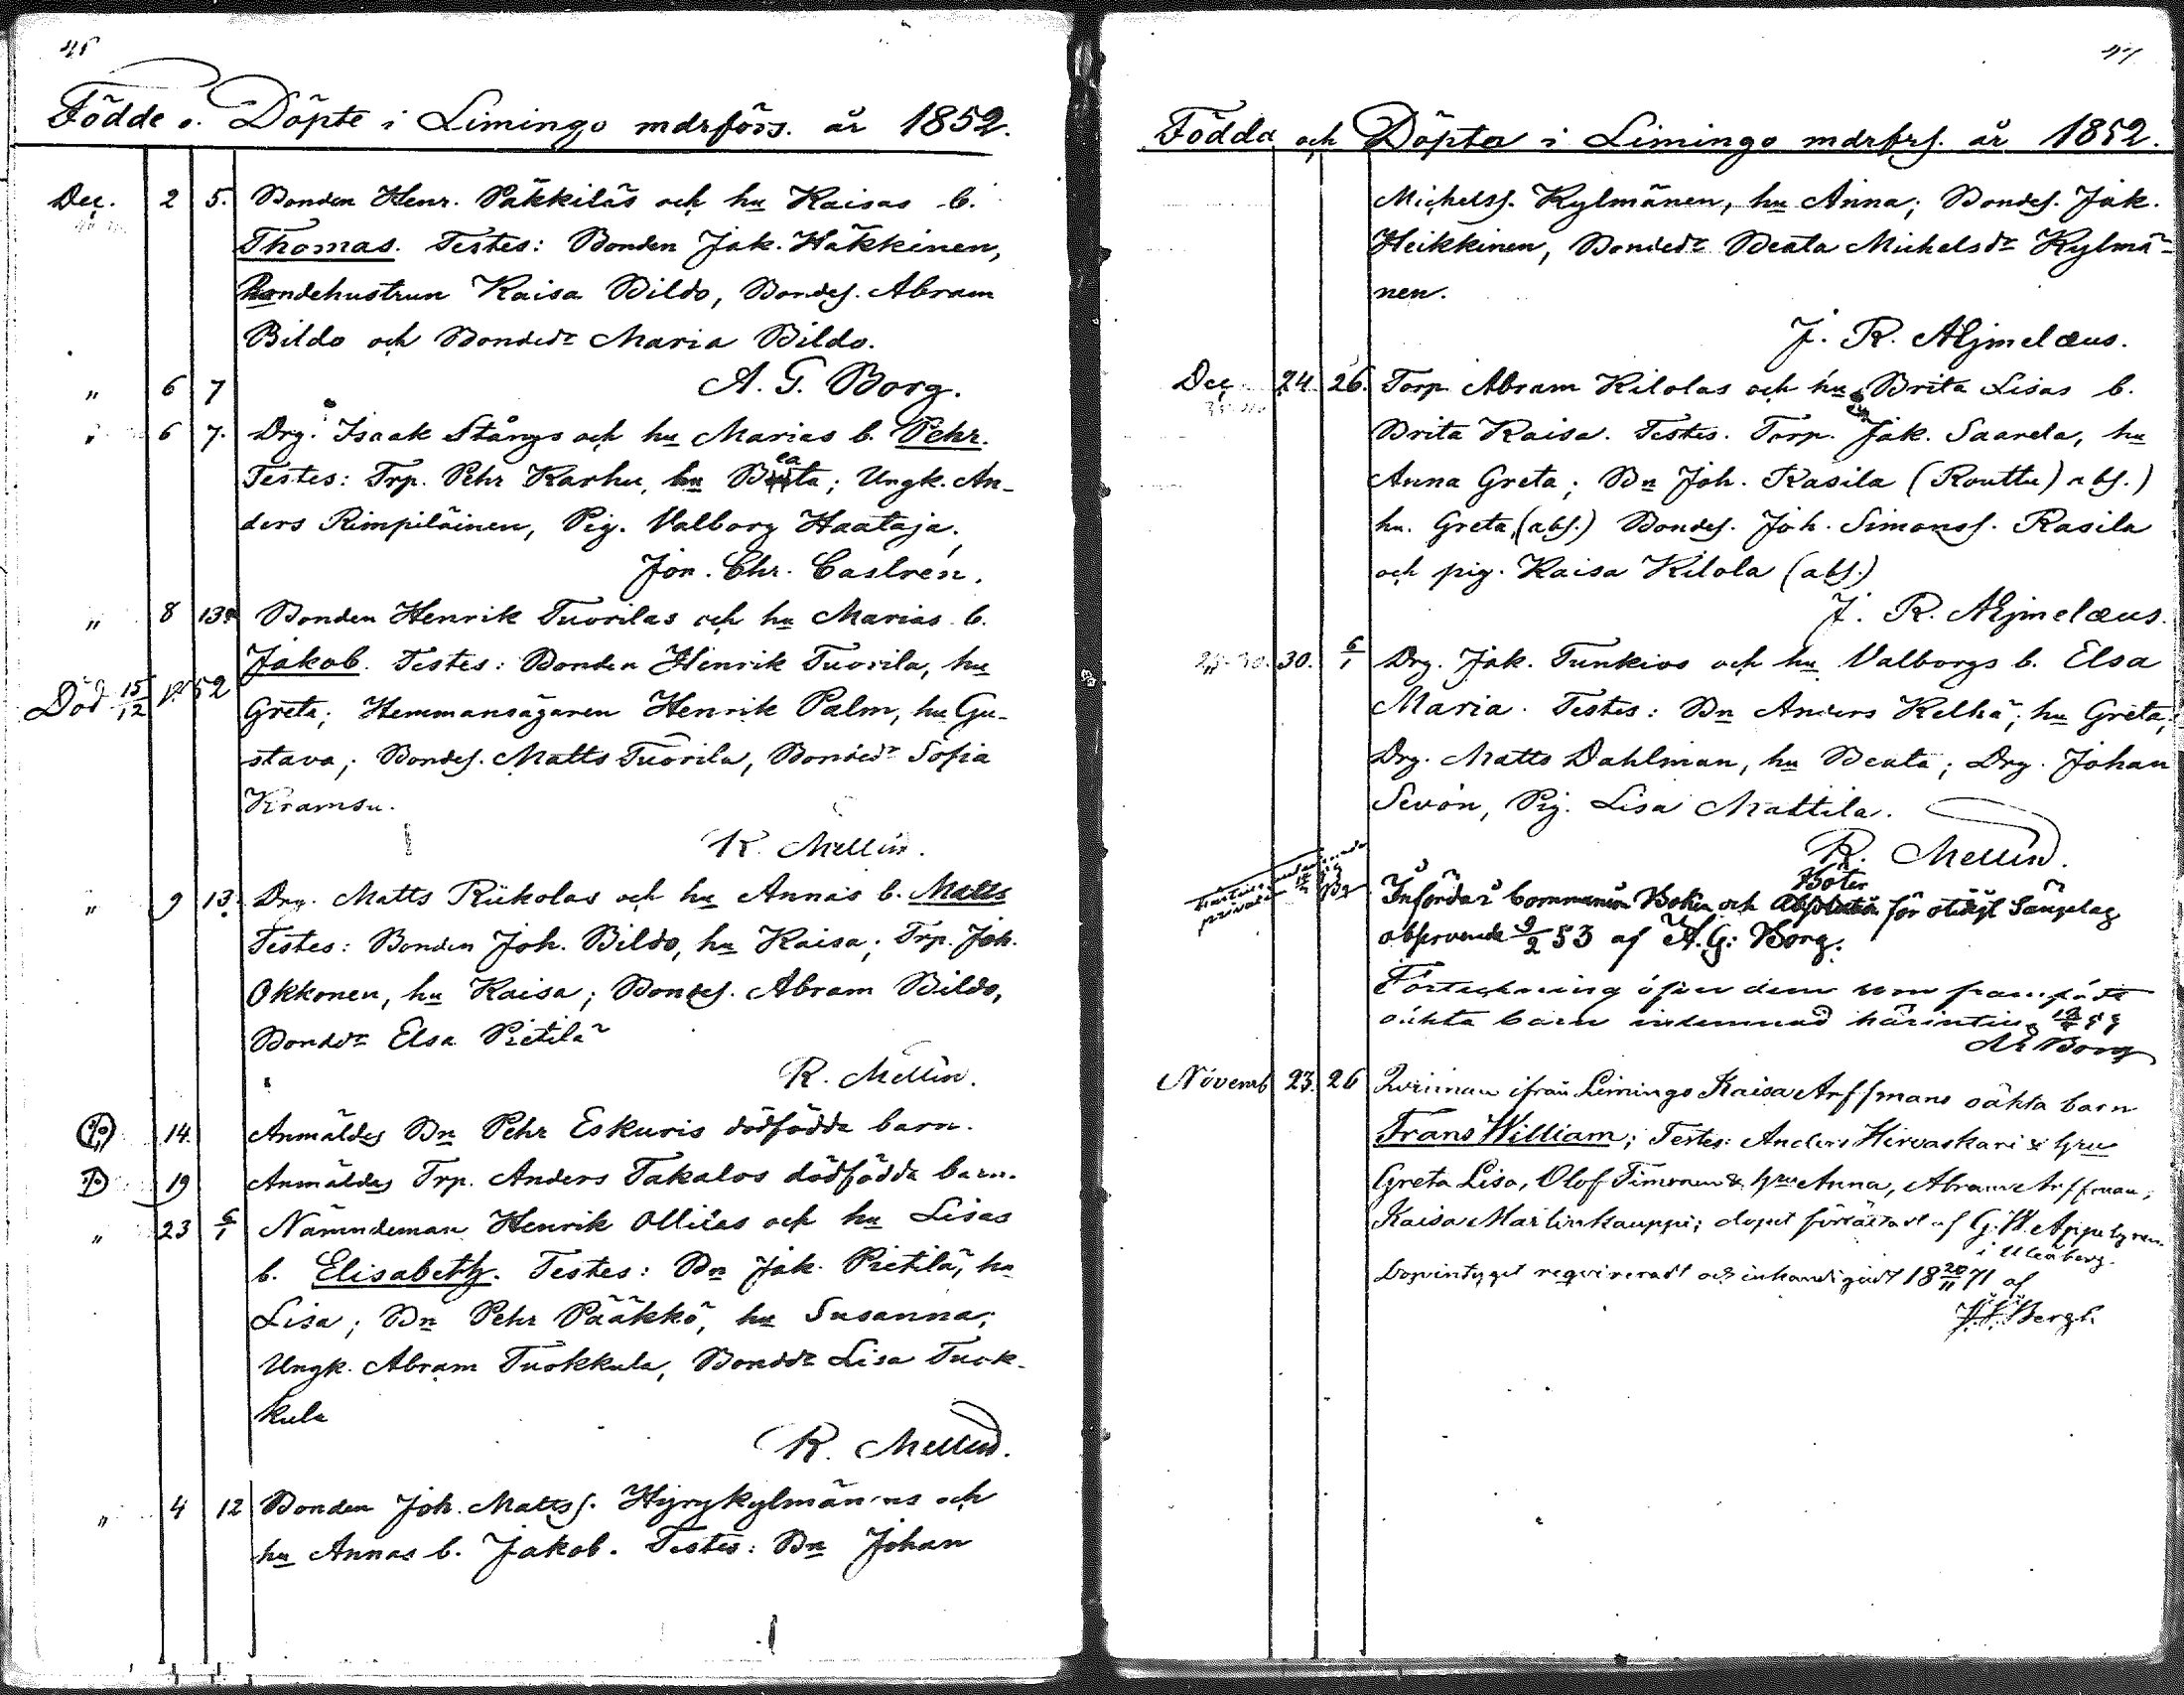 Födde o. Döpte i Limingo mdrförs. år 1852.
Dec. 2 5. Bonden Henr. Päkkiläs och hu Kaisas b.
Thomas. Testes: Bonden Jak. Häkkinen,
Bondehustrun Kaisa Bildo, Bondes. Abram
Bildo och Bondedr Maria Bildo.
" 6 7 A. G. Borg.
" 6 7. Drg. Isaak Stångs och hu Marias b. Pehr.
Testes: Trp. Pehr Karhu, hu Beata; Ungk. An-
ders Rimpiläinen, Pig. Valborg Haataja.
Jon. Chr. Castrén.
" 8 13 Bonden Henrik Tuorilas och hu Marias b.
Jakob. Testes: Bonden Henrik Tuorila, hu
Död 15/12 52
Greta; Hemmansägaren Henrik Palm, hu Gu-
stava; Bondes. Matts Tuorila, Bondedr Sofia
Kramsu.
R. Mellin.
" 9 13. Drg. Matts Riikolas och hu Annas b. Matts
Testes: Bonden Joh. Bildo, hu Kaisa; Trp. Joh.
Okkonen, hu Kaisa; Bondes. Abram Bildo,
Bondedr Elsa Pietilä
R. Mellin.
14. Anmäldes Bn Pehr Eskuris dödfödda barn.
19 Anmäldes Trp. Anders Takalos dödfödda barn.
" 23 6/1 Nämndeman Henrik Ollilas och hu Lisas
b. Elisabeth. Testes: Bn Jak. Pietilä, hu
Lisa; Bn Pehr Pääkkö, hu Susanna;
Ungk. Abram Tuokkula, Bondedr Lisa Tuok-
kula
R. Mellin.
" 4 12 Bonden Joh. Matss. Hyrykylmänens och
hu Annas b. Jakob. Testes: Bn Johan
Födda och Döpta i Limingo mdrfrs. år 1852.
Michelss. Kylmänen, hu Anna; Bondes. Jak.
Heikkinen, Bondedr Beata Michelsdr Kylmä-
nen.
J. R. Aejmelæus.
Dec 24. 26. Torp. Abram Kilolas och hu Brita Lisas b.
Brita Kaisa. Testes. Torp. Jak. Saarela, hu
Anna Greta; Bn Joh. Rasila (Routtu) abs.)
hu. Greta, (abs.) Bondes. Joh. Simonss. Rasila
och pig. Kaisa Kilola (abs.)
J. R. Aejmelæus.
30. 6/1 Drg. Jak. Tunkios och hu Valborgs b. Elsa
Maria. Testes: Bn Anders Kelhä; hu Greta;
Drg. Matts Dahlman, hu Beata; Drg. Johan
Sevón, Pig. Lisa Mattila.
R. Mellin.
Införda i Communion Boken och Böter för otidigt Sängelag
observerade 9/2 53 af A. G. Borg.
Förteckning öfver dem som framfödt
oäkta barn inlemnad härintill
AG Borg
Novemb 23. 26 Qvinnan ifrån Limingo Kaisa Arffmans oäkta barn
Frans William; Testes: Anders Hirvaskari & hru
Greta Lisa, Olof Timonen & hru Anna, Abram Arffman,
Kaisa Martinkauppi; dopet förrättadt af G. W. Appelgren
i Uleåborg.
Dopintyget requireradt och inhändigadt 18 20/11 71 af
Bergh